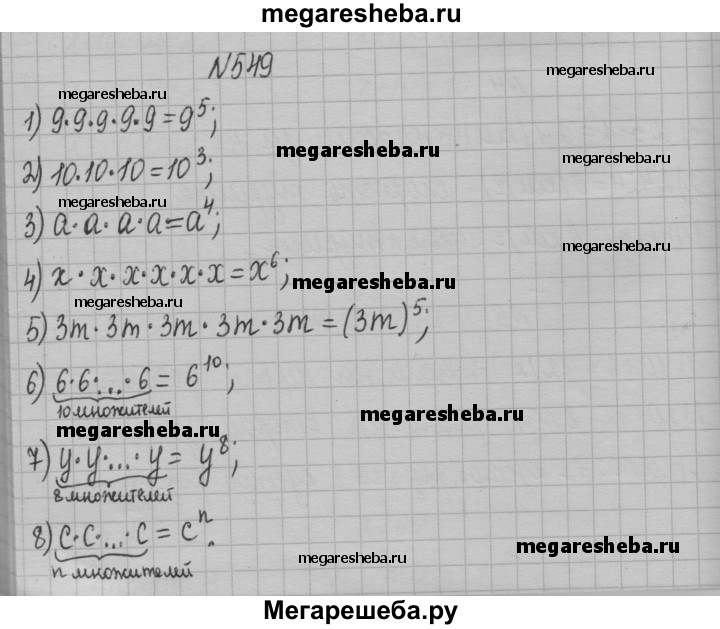 megaresheba.ru
N549
megaresheba.ru
megaresheba.ru
1) 9·9·9·9·9=9⁵;
megaresheba.ru
megaresheba.ru
2) 10·10·10=10³;
megaresheba.ru
3) a·a·a·a=a⁴;
megaresheba.ru
4) x·x·x·x·x·x=x⁶;
megaresheba.ru
megaresheba.ru
5) 3m·3m·3m·3m·3m=(3m)⁵;
6) 6·6·...·6=6¹⁰;
10 множителей
megaresheba.ru
megaresheba.ru
7) y·y·...·y=y⁸;
8 множителей
8) c·c·...·c=cⁿ.
megaresheba.ru
megaresheba.ru
n множителей
Мегарешеба.ру